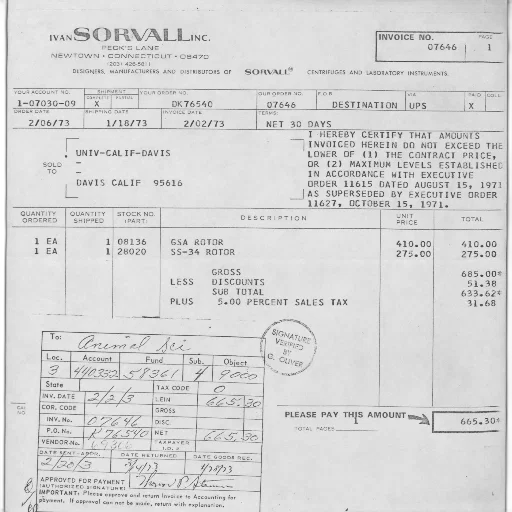 IVAN SORVALL INC.
PECK'S LANE
NEWTOWN • CONNECTICUT • 06470
(203) 426-5811
DESIGNERS, MANUFACTURERS AND DISTRIBUTORS OF SORVALL® CENTRIFUGES AND LABORATORY INSTRUMENTS.
INVOICE NO. PAGE
07646 1
YOUR ACCOUNT NO. SHIPMENT COMPLETE PARTIAL YOUR ORDER NO. OUR ORDER NO. F.O.B. VIA PAID COLL
1-07030-09 X DK76540 07646 DESTINATION UPS X
ORDER DATE SHIPPING DATE INVOICE DATE TERMS:
2/06/73 1/18/73 2/02/73 NET 30 DAYS
SOLD TO
UNIV-CALIF-DAVIS
DAVIS CALIF 95616
I HEREBY CERTIFY THAT AMOUNTS
INVOICED HEREIN DO NOT EXCEED THE
LOWER OF (1) THE CONTRACT PRICE,
OR (2) MAXIMUM LEVELS ESTABLISHED
IN ACCORDANCE WITH EXECUTIVE
ORDER 11615 DATED AUGUST 15, 1971
AS SUPERSEDED BY EXECUTIVE ORDER
11627, OCTOBER 15, 1971.
QUANTITY ORDERED QUANTITY SHIPPED STOCK NO. (PART) DESCRIPTION UNIT PRICE TOTAL
1 EA 1 08136 GSA ROTOR 410.00 410.00
1 EA 1 28020 SS-34 ROTOR 275.00 275.00
GROSS 685.00*
LESS DISCOUNTS 51.38
SUB TOTAL 633.62*
PLUS 5.00 PERCENT SALES TAX 31.68
SIGNATURE
VERIFIED
BY
G. OLIVER
To: Animal Sci
Loc. Account Fund Sub. Object
3 440332 58361 4 9000
State TAX CODE 0
INV. DATE 2/2/3 LEIN 665.30
COR. CODE GROSS
INV. No. 07646 DISC
P.O. No. K76540 NET 665.30
VENDOR No. TAXPAYER I.D. #
DATE SENT-APPD. DATE RETURNED DATE GOODS REC.
2/20/3
APPROVED FOR PAYMENT
(AUTHORIZED SIGNATURE)
IMPORTANT: Please approve and return invoice to Accounting for
payment. If approval can not be made, return with explanation.
PLEASE PAY THIS AMOUNT 665.30*
TOTAL PAGES 1